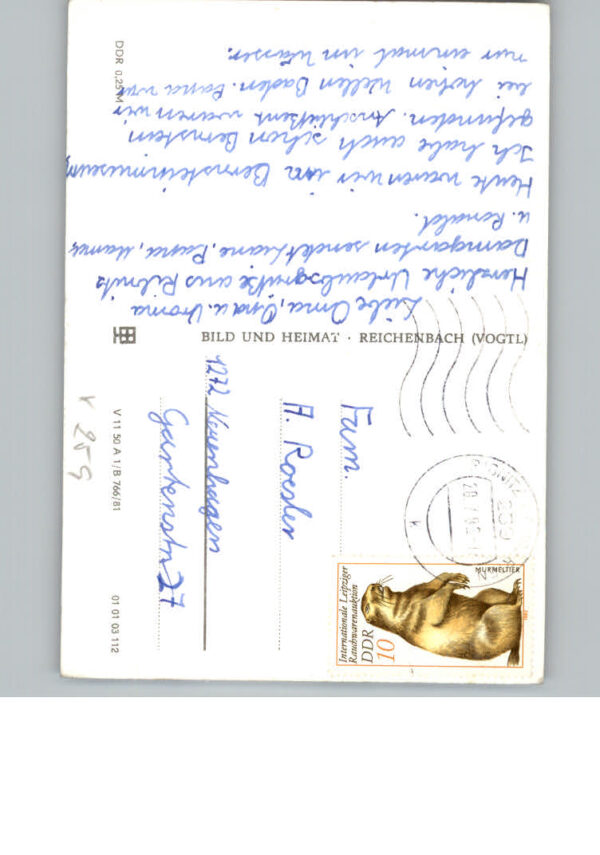 Liebe Oma, Opa u. Uroma
Herzliche Urlaubsgrüße aus Ribnitz
Damgarten sendet Liane, Papa, Mama
u. Ronald.
Heute waren wir im Bernsteinmuseum
Ich habe auch schon Bernstein
gefunden. Anschließent waren wir
bei hohen Wellen Baden. Papa war
nur einmal im Wasser.
DDR 0,25 M
BILD UND HEIMAT · REICHENBACH (VOGTL)
V 11 50 A 1/B 766/81
01 01 03 112
K 259
Fam.
A. Roesler
1272 Neuenhagen
Gartenstr 27
Internationale Leipziger
Rauchwarenauktion
DDR
10
MURMELTIER